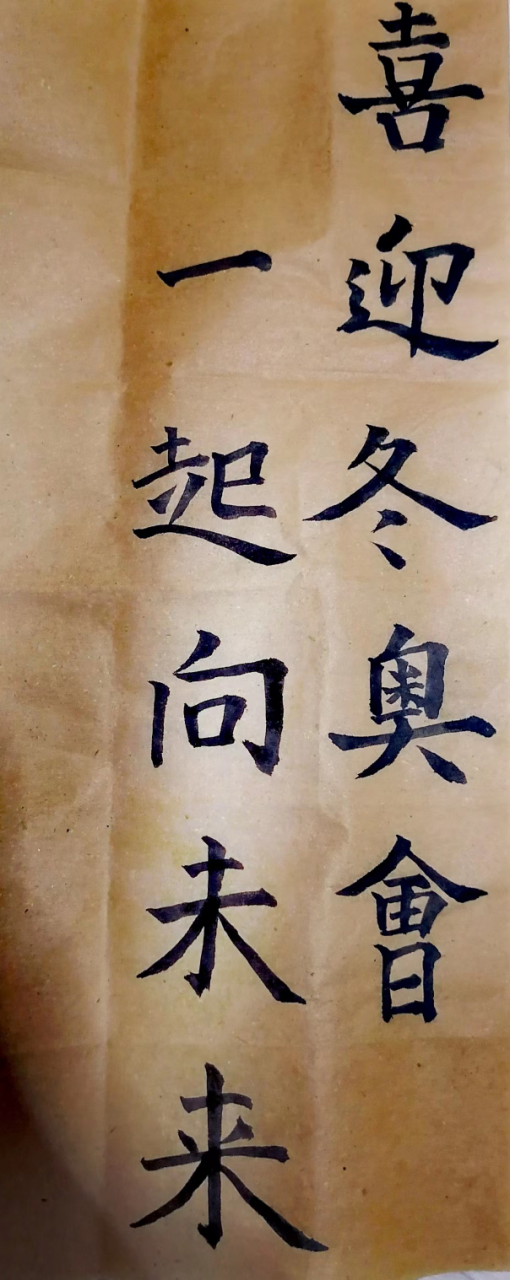 喜迎冬奧會
一起向未来